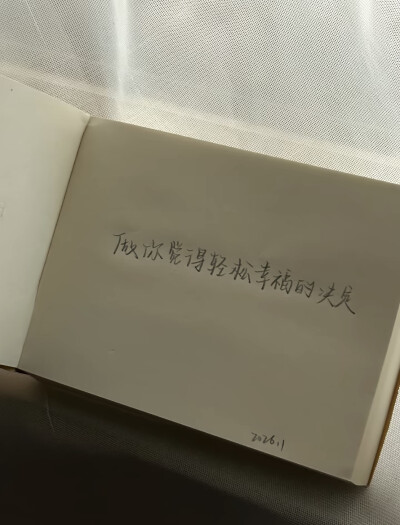 做你觉得轻松幸福的决定
2026.1